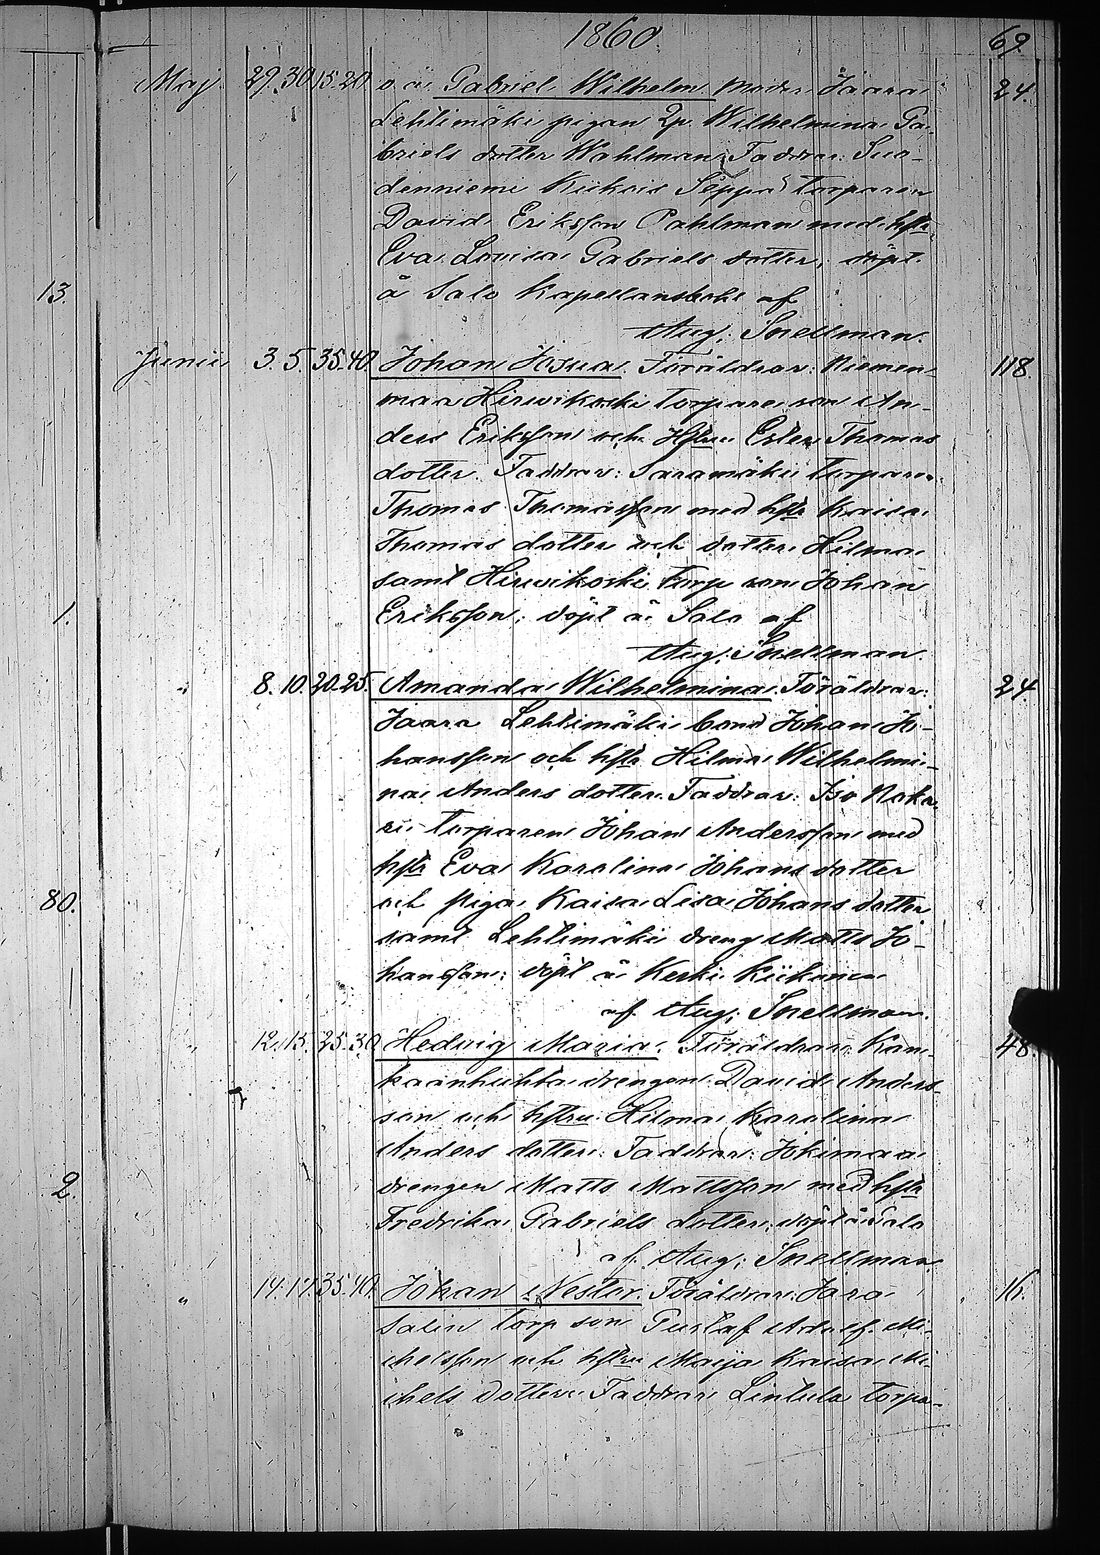 1860
69.
Maj 29. 30. 15. 20. o. ä. Gabriel Wilhelm. Moder: Jaara 24.
Lehtimäki pigan Wilhelmina Ga-
briels dotter Wahlman; Faddrar: Suo-
denniemi Kiikois Seppä Torparen
David Eriksson Pahlman med hstr
Eva Lovisa Gabriels dotter, döpt
13.
å Salo Kapellansbohl af
Aug. Snellman.
Junii 3. 5. 35. 40. Johan Josua. Föräldrar: Niemen- 118.
maa Hirwikoski torpare son An-
ders Eriksson och Hstru Ester Thomas
dotter. Faddrar: Saramäki torparen
Thomas Thomasson med hstr Kaisa
Thomas dotter och dotter Hilma
samt Hirwikoski torp son Johan
1.
Eriksson, döpt å Salo af
Aug. Snellman.
" 8. 10. 20. 25. Amanda Wilhelmina. Föräldrar: 24.
Jaara Lehtimäki bond Johan Jo-
hansson och hstr Hilma Wilhelmi-
na Anders dotter. Faddrar: Iso Naka-
ri torparen Johan Andersson med
hstr Eva Karolina Johans dotter
80.
och piga Kaisa Lisa Johans dotter
samt Lehtimäki dreng Matts Jo-
hansson; döpt å Keski Kiikoinen
af Aug. Snellman.
" 12. 15. 25. 30. Hedvig Maria. Föräldrar: Kan- 48.
kaanhuhta drengen David Anders-
son och hstru Hilma Karolina
Anders dotter. Faddrar: Jokimaa
2.
drengen Matts Mattsson med hstr
Fredrika Gabriels dotter, döpt å Salo
af Aug. Snellman.
" 14. 17. 35. 40. Johan Nestor. Föräldrar: Jaara 16.
Salin torp son Gustaf Adolf Mi-
chelsson och hstru Maija Kaisa Mi-
chels dotter. Faddrar: Lintula torpa-